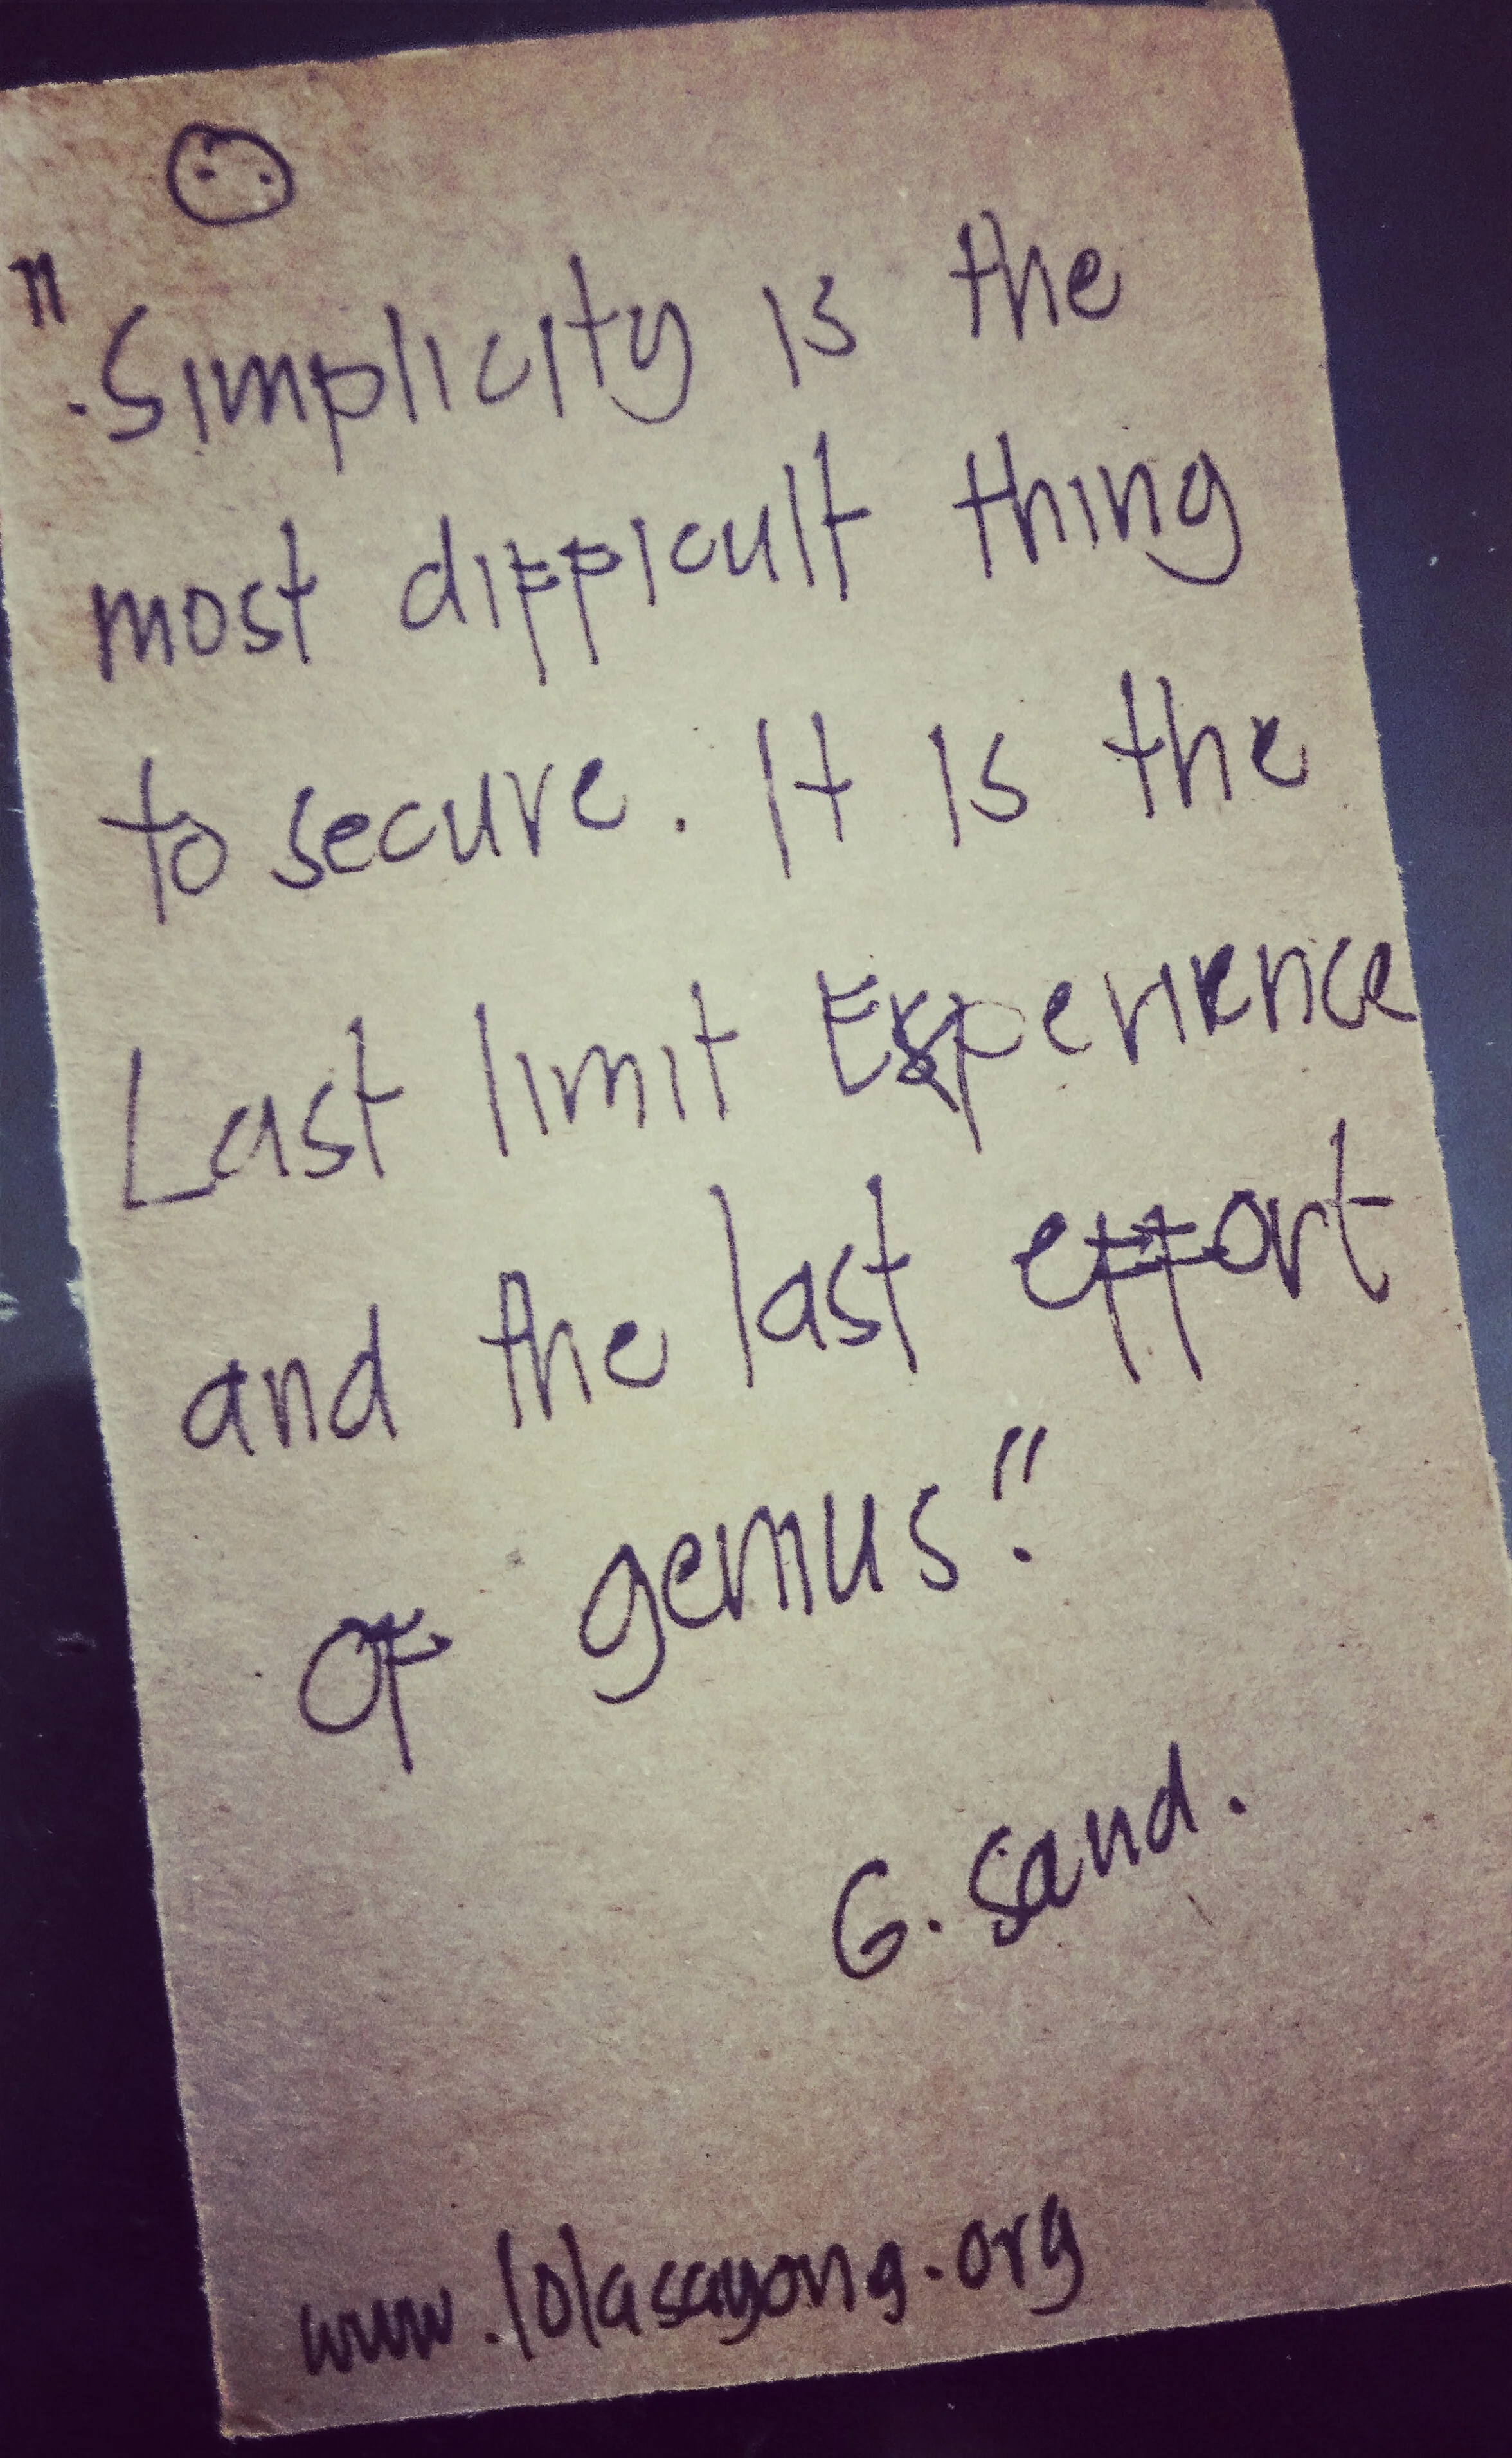 "Simplicity is the
most difficult thing
to secure. It is the
Last limit Experience
and the last effort
of genius."
G. Sand.
www.lolasayong.org